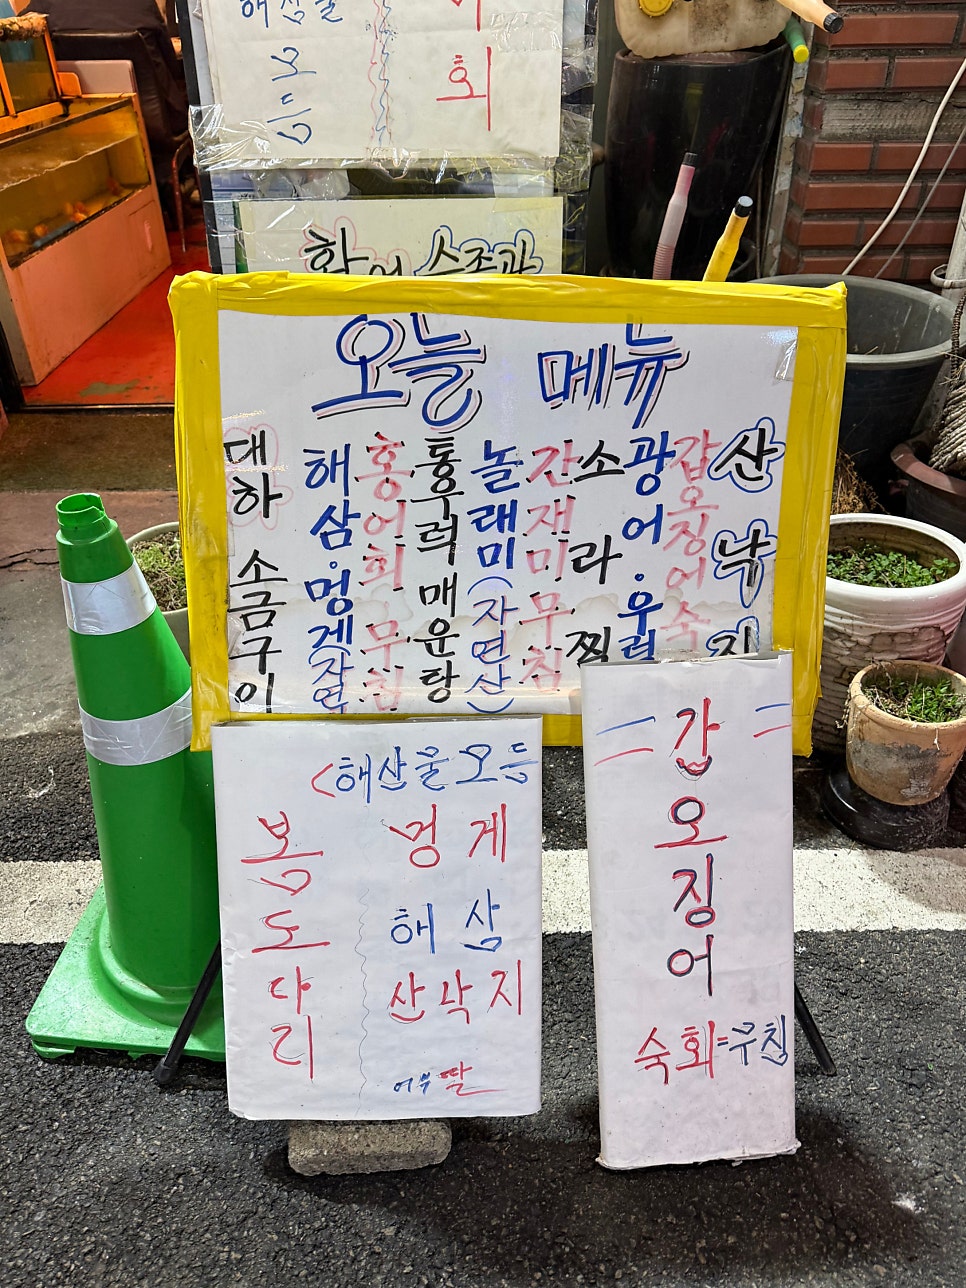 해삼물
모듬
회
활어 수족관
오늘 메뉴
대하 소금구이
해삼·멍게 자연
홍어회 무침
통우럭 매운탕
놀래미 (자연산)
간재미 무침
소라 찜
광어·우럭
갑오징어 숙
산낙지
<해산물모듬
봄도다리
멍게
해삼
산낙지
어부딸
갑오징어
숙회=무침